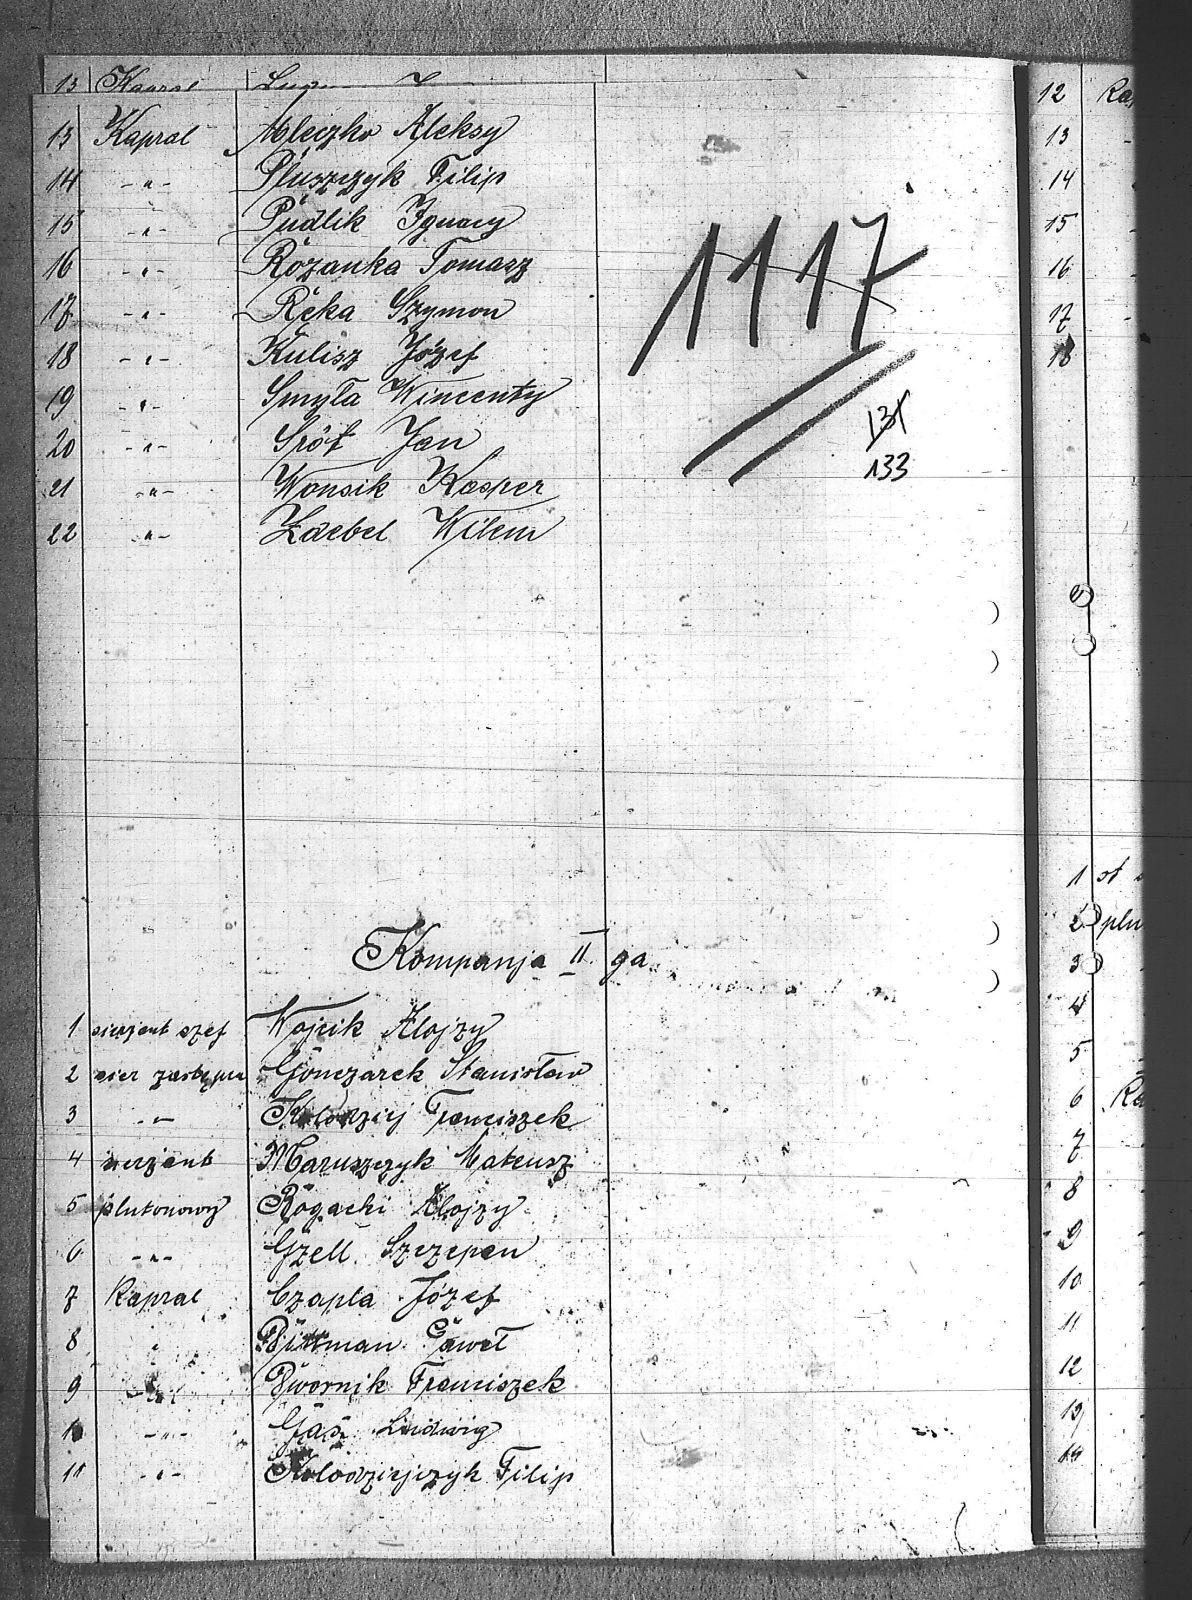 13 Kapral
13 Kapral Mleczko Aleksy
14 -"- Pluszczyk Filip
15 -"- Pudlik Ignacy
16 -"- Różanka Tomasz
17 -"- Ręka Szymon
18 -"- Kulisz Józef
19 -"- Smyła Wincenty
20 -"- Spóf Jan
21 -"- Wonsik Kasper
22 -"- Zdebel Wilem
1117
131
133
Kompanja II ga
1 sierżant szef Wojcik Alojzy
2 sier zastępca Gonczarek Stanisław
3 -"- Kolodziej Franciszek
4 sierżant Maruszczyk Mateusz
5 plutonowy Rogacki Alojzy
6 -"- Gzell Szczepan
7 Kapral Czapla Józef
8 " Dittman Paweł
9 -"- Dwornik Franciszek
1 -"- Gaś Ludwig
11 -"- Kolodziejczyk Filip
12 Ka
13
14
15
16
17
18
1 st
2 plu
3
4
5
6 Ka
7
8
9
10
11
12
13
14